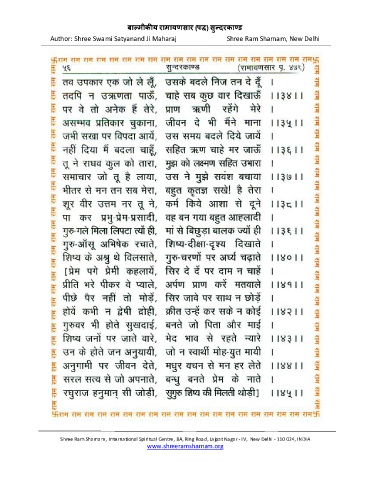 बाल्मीकीय रामायणसार (पद्य) सुन्दरकाण्ड
Author: Shree Swami Satyanand Ji Maharaj Shree Ram Sharnam, New Delhi
राम राम राम राम राम राम राम राम राम राम राम राम राम राम राम राम राम राम
५६ सुन्दरकाण्ड (रामायणसार पृ. ४७६)
तव उपकार एक जो ले लूँ, उसके बदले निज तन दे दूँ ।
तदपि न उऋणता पाऊँ, चाहे सब कुछ वार दिखाऊँ ।।३४।।
पर वे तो अनेक हैं तेरे, प्राण ऋणी रहेंगे मेरे ।
असम्भव प्रतिकार चुकाना, जीवन दे भी मैंने माना ।।३५।।
जभी सखा पर विपदा आयें, उस समय बदले दिये जायें ।
नहीं दिया मैं बदला चाहूँ, सहित ऋण चाहे मर जाऊँ ।।३६।।
तू ने राघव कुल को तारा, मुझ को लक्ष्मण सहित उभारा ।
समाचार जो तू है लाया, उस ने मुझे सवंश बचाया ।।३७।।
भीतर से मन तन सब मेरा, बहुत कृतज्ञ सखे! है तेरा ।
शूर वीर उत्तम नर तू ने, कर्म किये आशा से दूने ।।३८।।
पा कर प्रभु-प्रेम-प्रसादी, वह बन गया बहुत आह्लादी ।
गुरु-गले मिला लिपटा त्यों ही, मां से बिछुड़ा बालक ज्यों ही ।।३९।।
गुरु-आँसू अभिषेक रचाते, शिष्य-दीक्षा-दृश्य दिखाते ।
शिष्य के अश्रु थे विलसाते, गुरु-चरणों पर अर्घ्य चढ़ाते ।।४०।।
[प्रेम पगे प्रेमी कहलायें, सिर दे दें पर दाम न चाहें ।
प्रीति भरे पीकर वे प्याले, अर्पण प्राण करें मतवाले ।।४१।।
पीछे पैर नहीं तो मोड़ें, सिर जावे पर साथ न छोड़ें ।
होवें कभी न द्वेषी द्रोही, क्रीत उन्हें कर सके न कोई ।।४२।।
गुरुवर भी होते सुखदाई, बनते जो पिता और माई ।
शिष्य जनों पर जाते वारे, भेद भाव से रहते न्यारे ।।४३।।
उन के होते जन अनुयायी, जो न स्वार्थी मोह-युत मायी ।
अनुगामी पर जीवन देते, मधुर वचन से मन हर लेते ।।४४।।
सरल सत्य से जो अपनाते, बन्धु बनते प्रेम के नाते ।
रघुराज हनुमान् सी जोड़ी, सुगुरु शिष्य की मिलती थोड़ी] ।।४५।।
राम राम राम राम राम राम राम राम राम राम राम राम राम राम राम राम राम राम
Shree Ram Sharnam, International Spiritual Centre, 8A, Ring Road, Lajpat Nagar - IV, New Delhi - 110 024, INDIA
www.shreeramsharnam.org